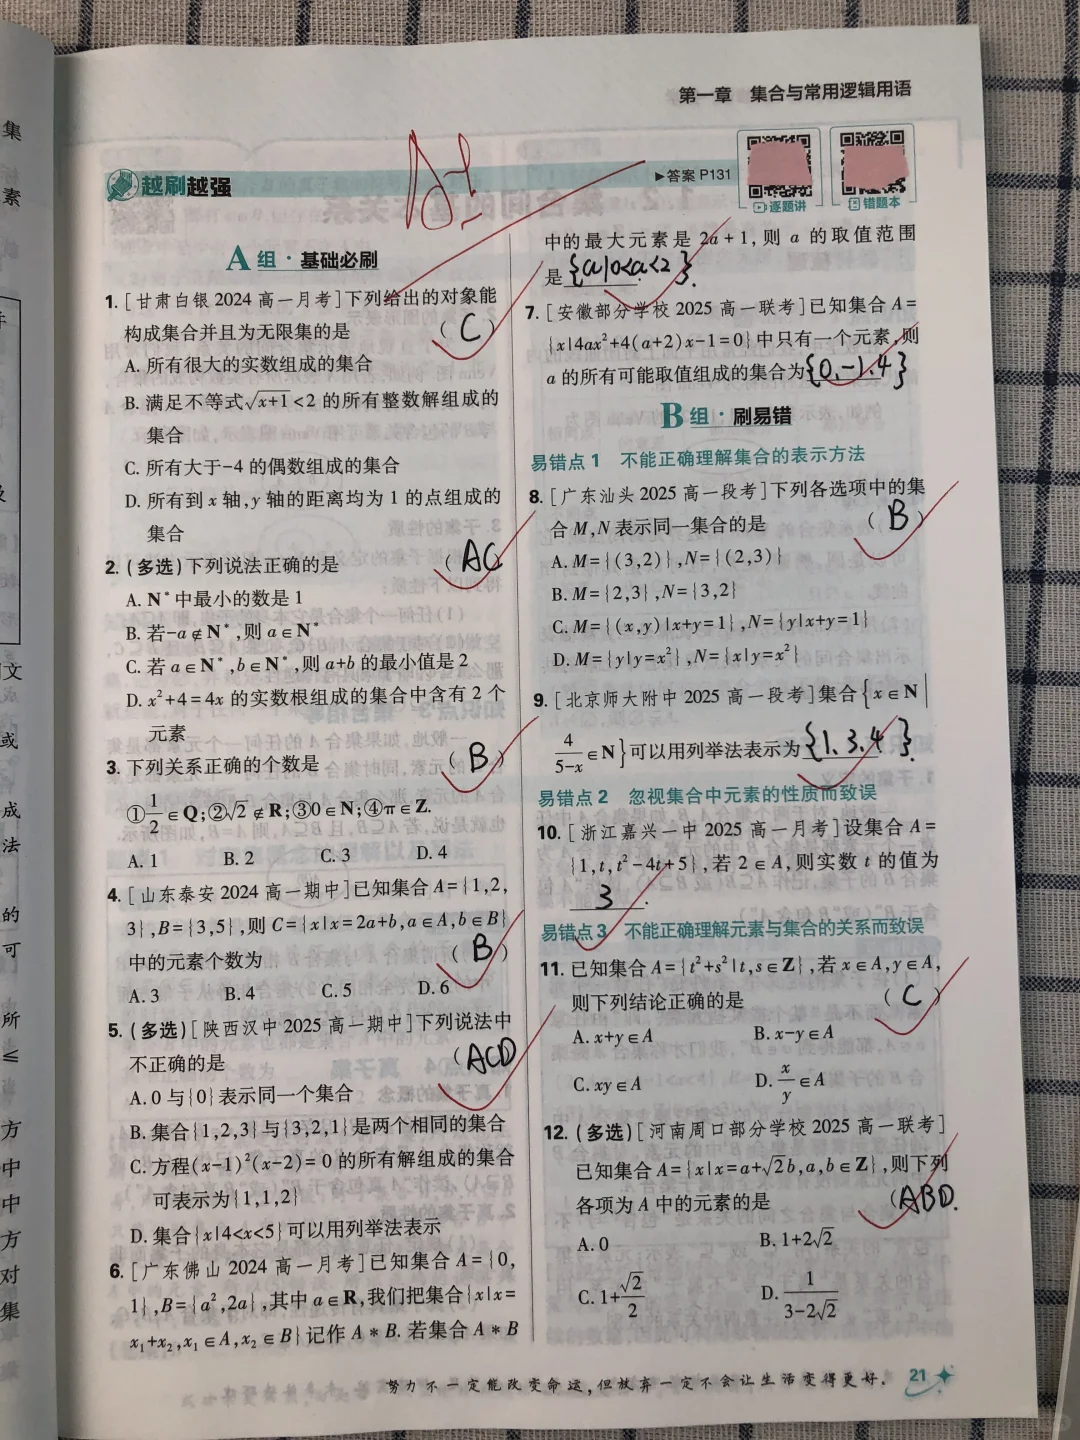 第一章 集合与常用逻辑用语
A+
越刷越强
▶答案 P131
逐题讲
错题本
A组·基础必刷
1. [甘肃白银 2024 高一月考]下列给出的对象能
构成集合并且为无限集的是 ( C )
A. 所有很大的实数组成的集合
B. 满足不等式√x+1<2 的所有整数解组成的
集合
C. 所有大于-4 的偶数组成的集合
D. 所有到 x 轴,y 轴的距离均为 1 的点组成的
集合
2. (多选)下列说法正确的是 ( AC )
A. N* 中最小的数是 1
B. 若-a∉N*,则 a∈N*
C. 若 a∈N*,b∈N*,则 a+b 的最小值是 2
D. x²+4=4x 的实数根组成的集合中含有 2 个
元素
3. 下列关系正确的个数是 ( B )
①1/2∈Q;②√2∉R;③0∈N;④π∈Z.
A. 1 B. 2 C. 3 D. 4
4. [山东泰安 2024 高一期中]已知集合 A={1,2,
3},B={3,5},则 C={x|x=2a+b,a∈A,b∈B}
中的元素个数为 ( B )
A. 3 B. 4 C. 5 D. 6
5. (多选)[陕西汉中 2025 高一期中]下列说法中
不正确的是 ( ACD )
A. 0 与{0}表示同一个集合
B. 集合{1,2,3}与{3,2,1}是两个相同的集合
C. 方程(x-1)²(x-2)=0 的所有解组成的集合
可表示为{1,1,2}
D. 集合{x|4<x<5}可以用列举法表示
6. [广东佛山 2024 高一月考]已知集合 A={0,
1},B={a²,2a},其中 a∈R,我们把集合{x|x=
x₁+x₂,x₁∈A,x₂∈B}记作 A*B. 若集合 A*B
中的最大元素是 2a+1,则 a 的取值范围
是 {a|0<a<2}.
7. [安徽部分学校 2025 高一联考]已知集合 A=
{x|4ax²+4(a+2)x-1=0}中只有一个元素,则
a 的所有可能取值组成的集合为{0,-1,4}
B组·刷易错
易错点 1 不能正确理解集合的表示方法
8. [广东汕头 2025 高一段考]下列各选项中的集
合 M,N 表示同一集合的是 ( B )
A. M={(3,2)},N={(2,3)}
B. M={2,3},N={3,2}
C. M={(x,y)|x+y=1},N={y|x+y=1}
D. M={y|y=x²},N={x|y=x²}
9. [北京师大附中 2025 高一段考]集合{x∈N|
4/(5-x)∈N}可以用列举法表示为{1,3,4}.
易错点 2 忽视集合中元素的性质而致误
10. [浙江嘉兴一中 2025 高一月考]设集合 A=
{1,t,t²-4t+5},若 2∈A,则实数 t 的值为
3.
易错点 3 不能正确理解元素与集合的关系而致误
11. 已知集合 A={t²+s²|t,s∈Z},若 x∈A,y∈A,
则下列结论正确的是 ( C )
A. x+y∈A B. x-y∈A
C. xy∈A D. x/y∈A
12. (多选)[河南周口部分学校 2025 高一联考]
已知集合 A={x|x=a+√2b,a,b∈Z},则下列
各项为 A 中的元素的是 (ABD.
A. 0 B. 1+2√2
C. 1+√2/2 D. 1/(3-2√2)
努力不一定能改变命运,但放弃一定不会让生活变得更好. 21
集
素
文
或
成
法
的
可
所
≤
方
中
中
方
对
集